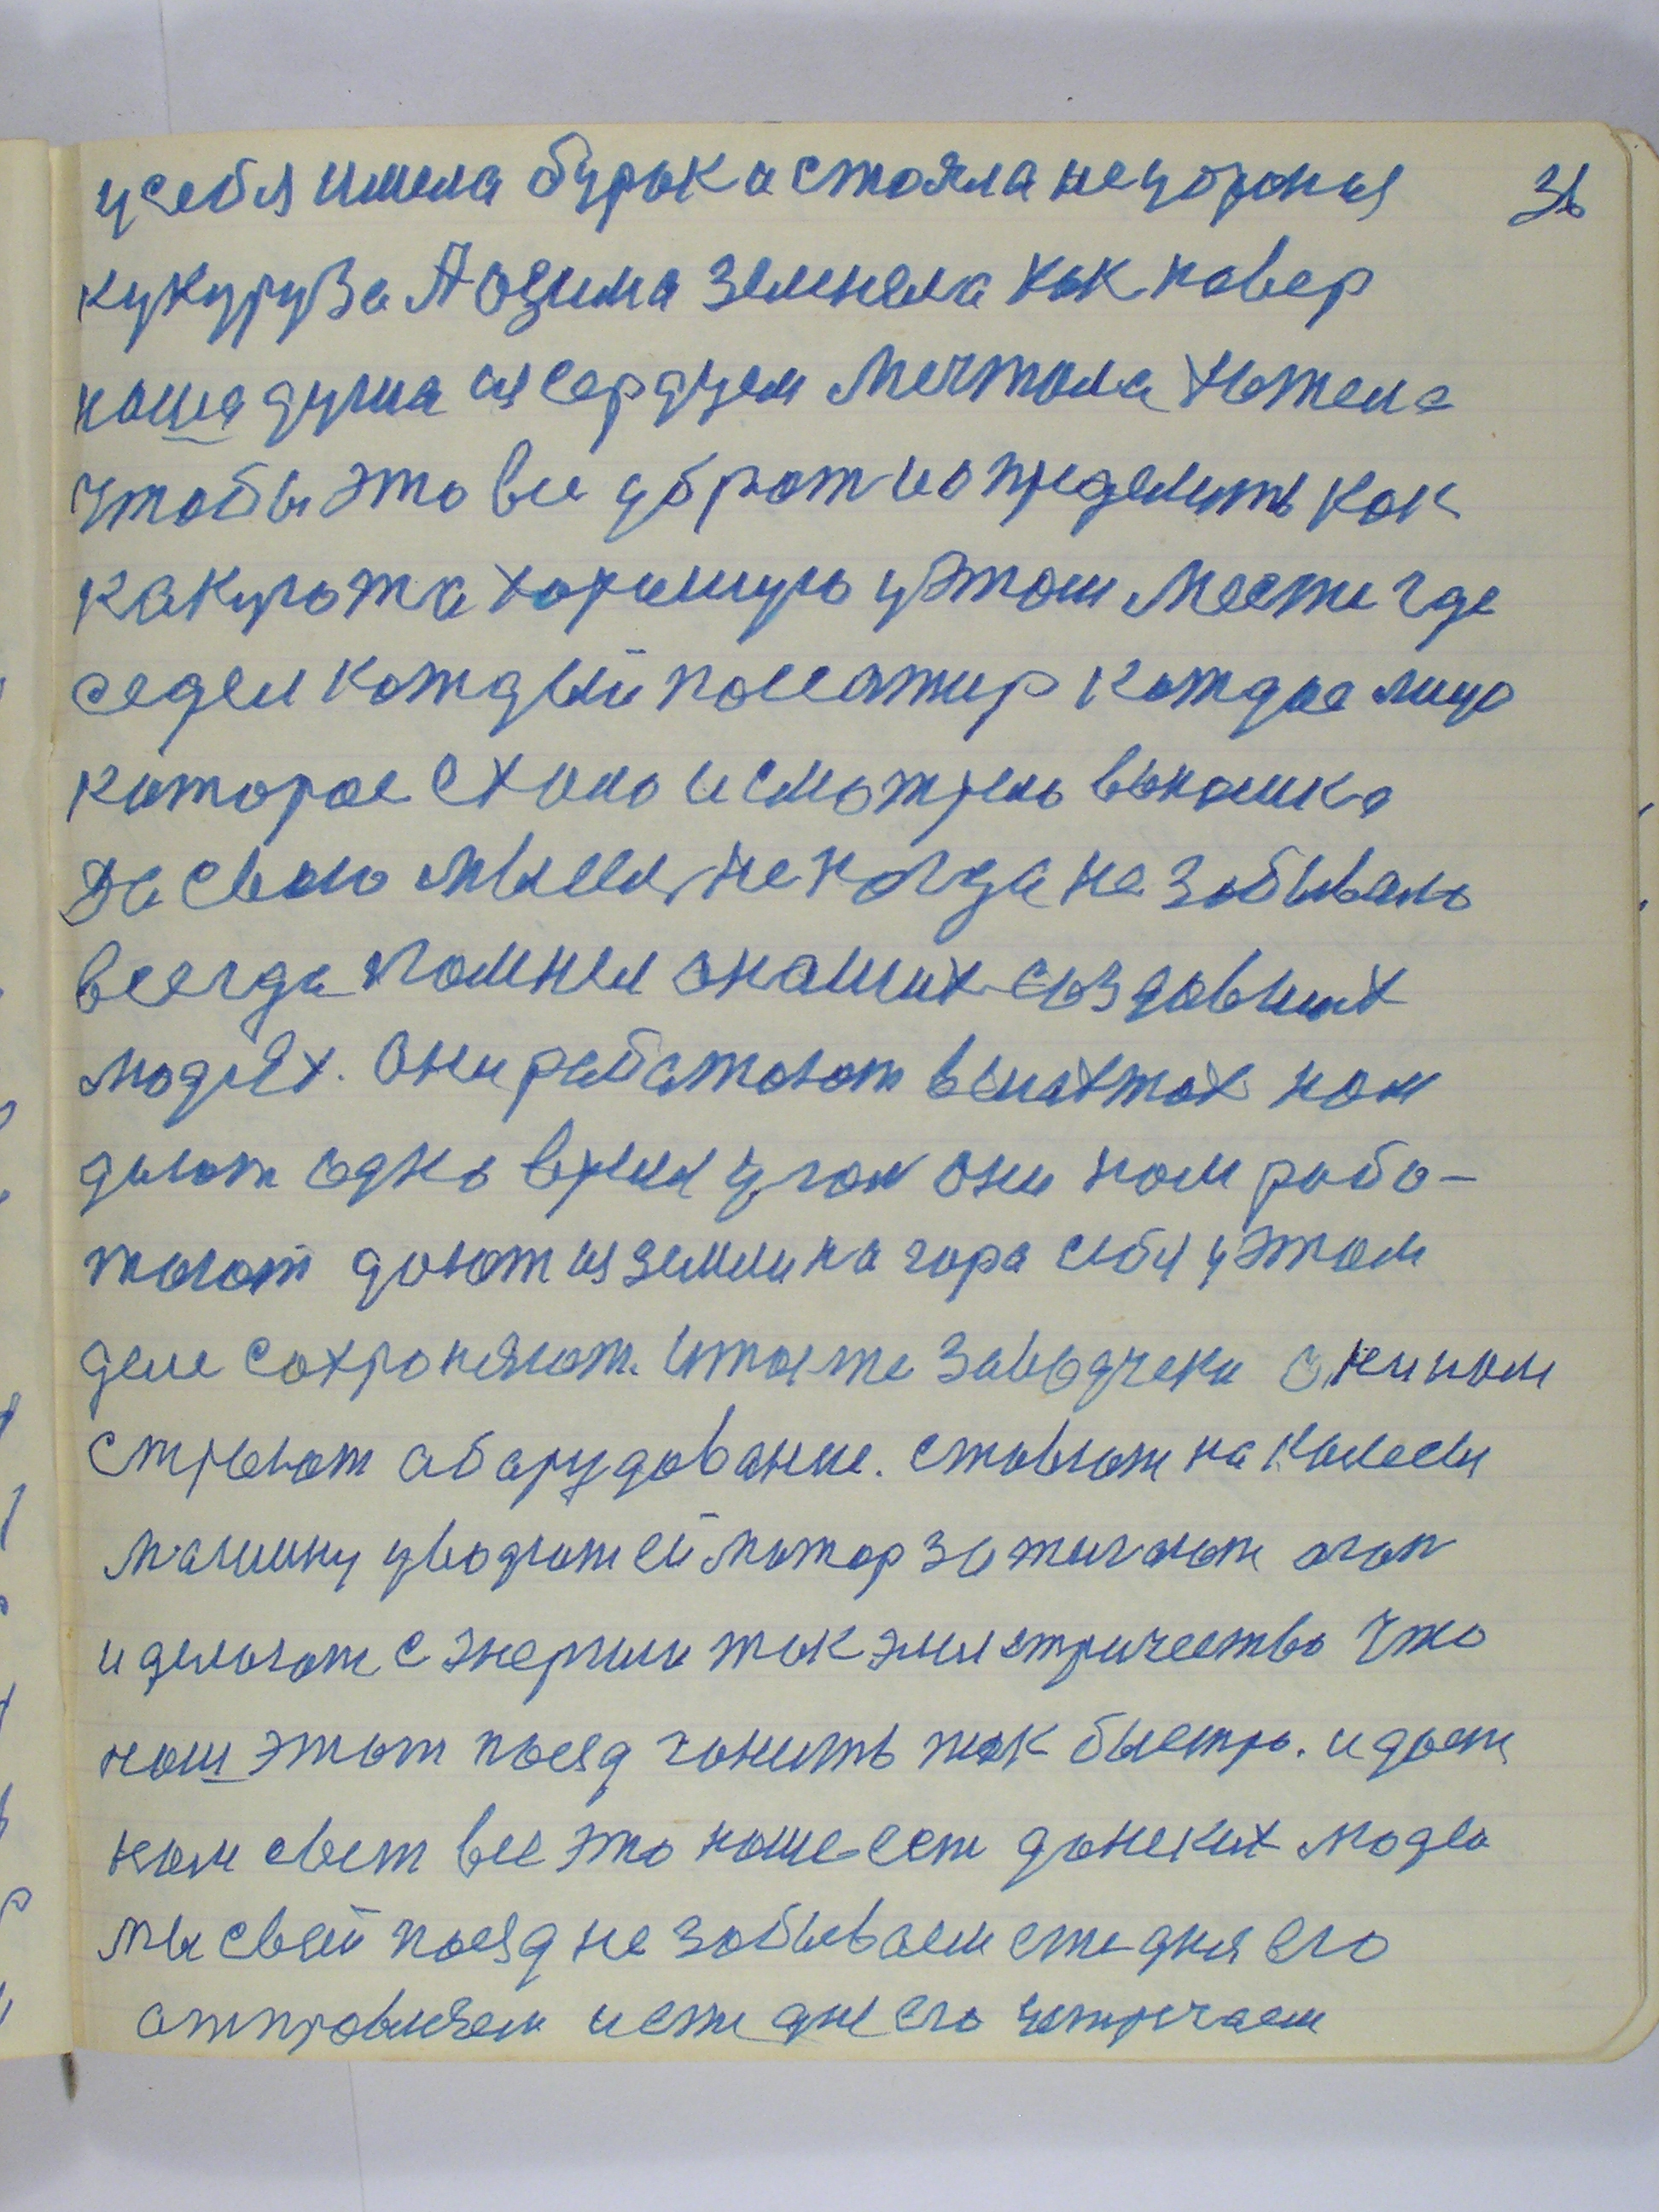 у себя имела бурьк и стояла неубраная 36
кукуруза А озима зеленела как ковер
наша душа из сердцем мечтала хотела
чтобы это все убрат и определить как
какуюта хорошую у этом месте где
седел каждый посажир каждое лицо
каторое ехало и смотрело вокошка
Да свою мысел некогда не забывало
всегда помнел о наших создавших
людях. Они работают вшахтах нам
дают одно время угол они нам рабо-
тают дают из земли на гора себя у этом
деле сохроняют. Итоже заводчеки они нам
строют абарудование. ставют на колесы
машину уводют ей мотор зажигают огон
и делают с энергии ток элестричество что
наш этот поезд гонить так быстро. и дает
нам свет все это наше есть донских людей
мы свой поезд не забываем сегодня его
атправляем и сегодне его устречаем